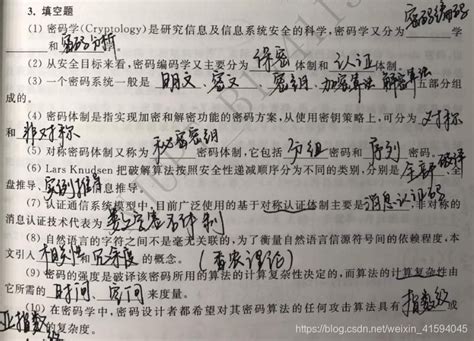 3. 填空题
密码编码
(1) 密码学(Cryptology)是研究信息及信息系统安全的科学,密码学又分为 学
和 密码分析
(2) 从安全目标来看,密码编码学又主要分为 保密 体制和 认证 体制。
(3) 一个密码系统一般是 明文、密文、密钥、加密算法 解密算法 五部分组
成的。
(4) 密码体制是指实现加密和解密功能的密码方案,从使用密钥策略上,可分为 对称
和 非对称
(5) 对称密码体制又称为 密码体制,它包括 分组 密码和 序列 密码。
(6) Lars Knudsen 把破解算法按照安全性递减顺序分为不同的类别,分别是 全部破译、全
盘推导、实例推导、信息推导。
(7) 认证通信系统模型中,目前广泛使用的基于对称认证体制主要是 消息认证码,非对称的
消息认证技术代表为 数字签名体制
(8) 自然语言的字符之间不是毫无关联的,为了衡量自然语言信源符号间的依赖程度,本
文引入 相关性 和 冗余度 的概念。
(9) 密码的强度是破译该密码所用的算法的计算复杂性决定的,而算法的计算复杂性由
它所需的 时间、空间 来度量。
(10) 在密码学中,密码设计者都希望对其密码算法的任何攻击算法具有 指数级 或
亚指数 的复杂度。
https://blog.csdn.net/weixin_41594045